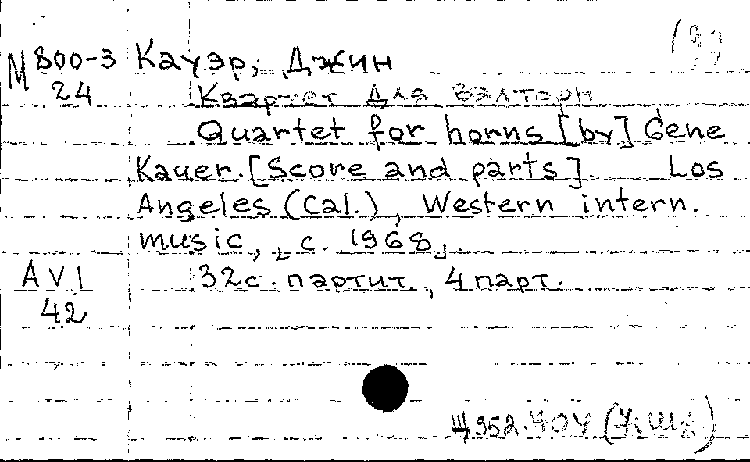 М 800-3 Кауэр, Джин
24 Квартет для валторн
Quartet for horns [by] Gene
Kauer. [Score and parts]. Los
Angeles (Cal.), Western intern.
music, „c. 1968„.
AVI 32с. партит., 4 парт.
42
Щ952.404